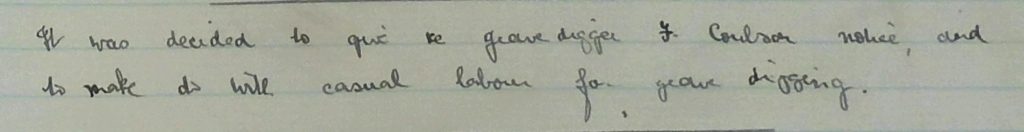 It was decided to give the grave digger F. Coulson notice, and
to make do with casual labour for grave digging.